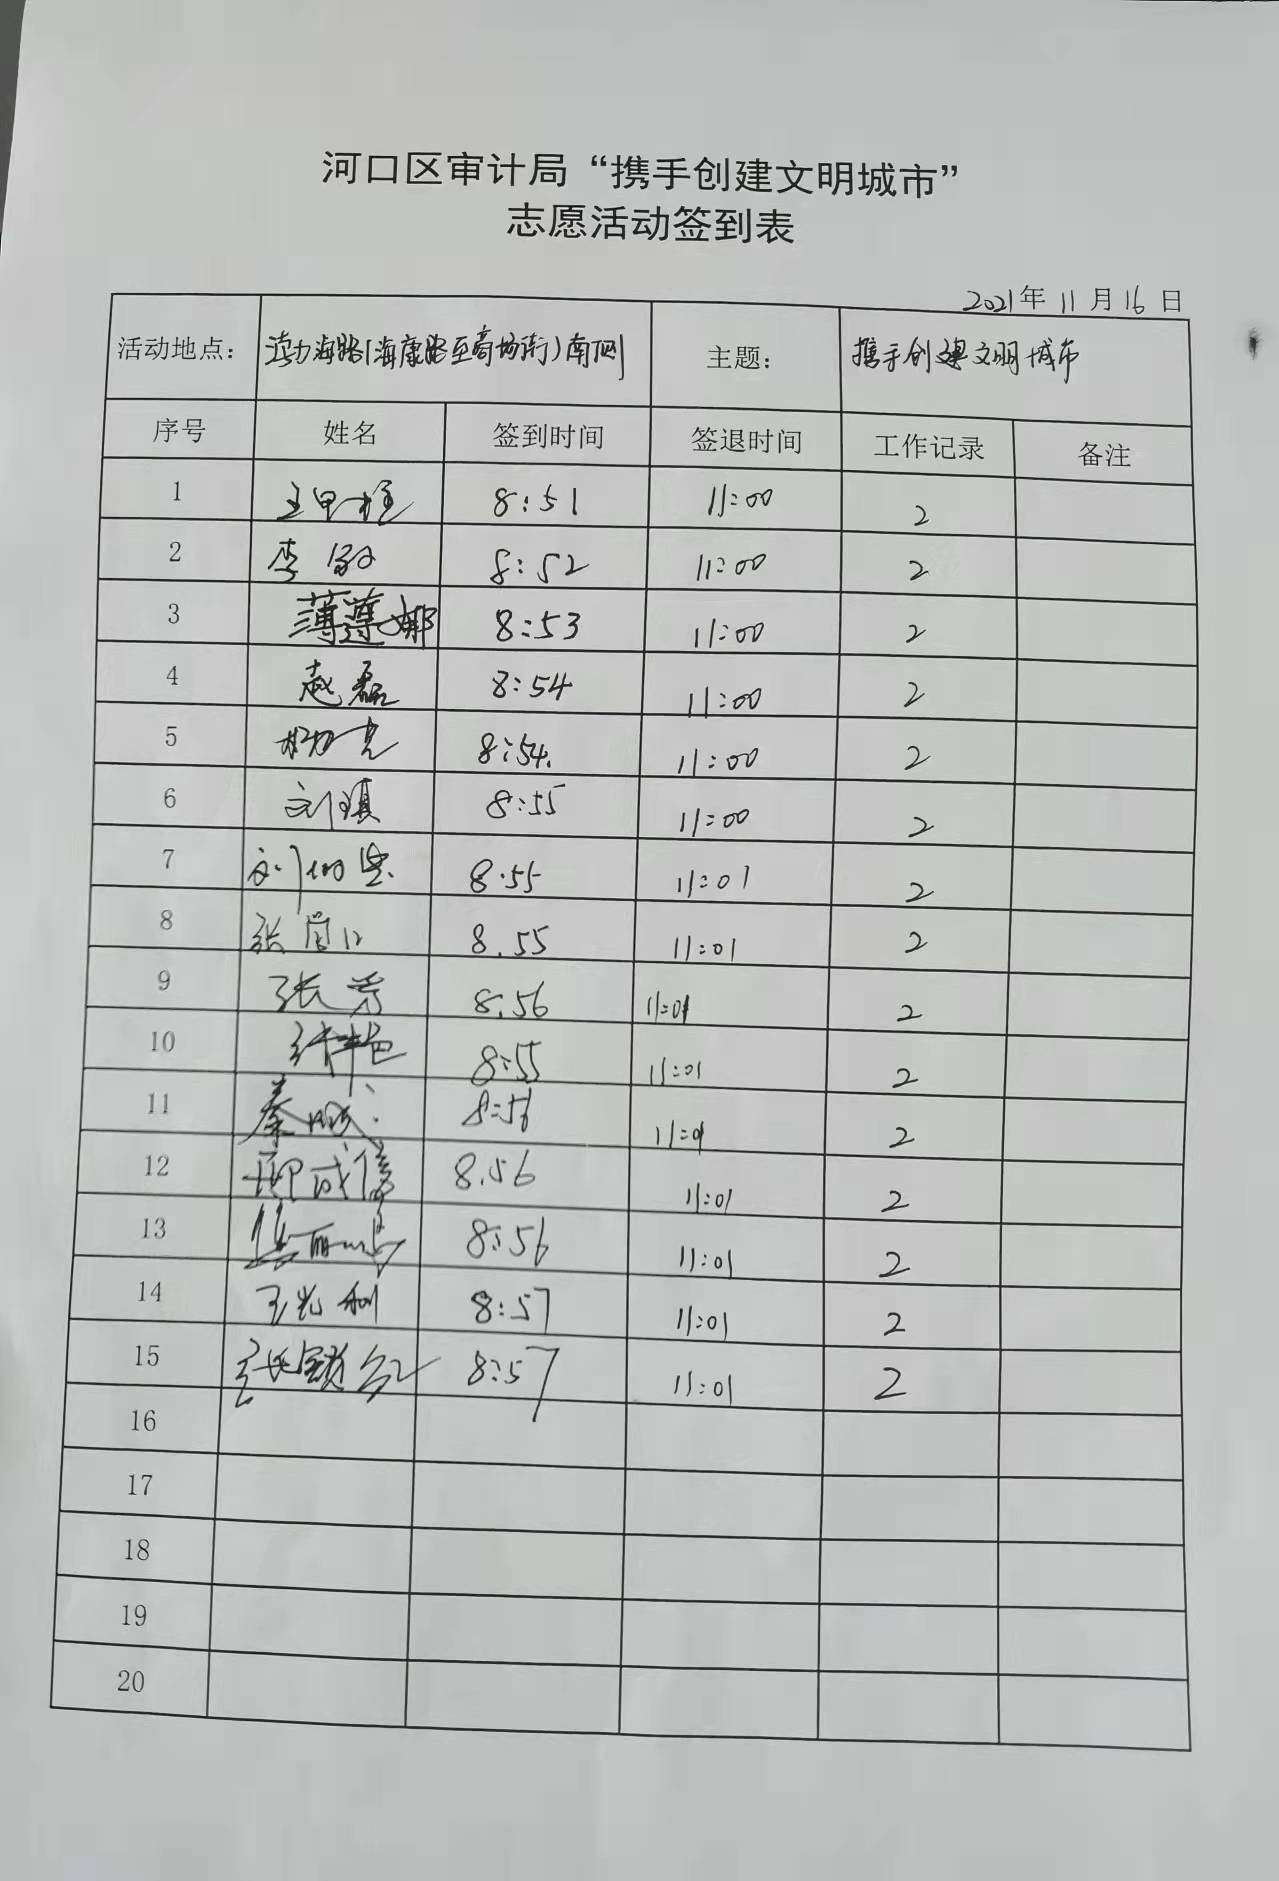 河口区审计局“携手创建文明城市”
志愿活动签到表
2021年 11 月 16 日
活动地点： 渤海路(海康路至商场街)南侧 主题： 携手创建文明城市
序号 姓名 签到时间 签退时间 工作记录 备注
1 8:51 11:00 2
2 李敏 8:52 11:00 2
3 薄莲娜 8:53 11:00 2
4 赵磊 8:54 11:00 2
5 杨亮 8:54. 11:00 2
6 刘瑱 8:55 11:00 2
7 8.55 11:01 2
8 8.55 11:01 2
9 张芳 8:56 11:01 2
10 8:55 11:01 2
11 8:56 11:01 2
12 8.56 11:01 2
13 8:56 11:01 2
14 8:57 11:01 2
15 8:57 11:01 2
16
17
18
19
20